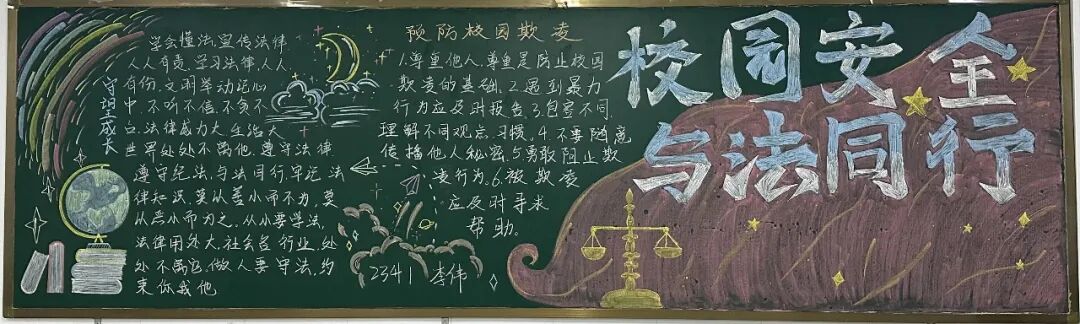 守望成长
学会懂法,宣传法律
人人有责,学习法律人人
有份,文明举动记心
中,不听不信,不贪不
占,法律威力大,生活大
世界处处不离他,遵守法律
遵守纪法,与法同行,牢记法
律知识,莫以善小而不为,莫
从恶小而为之,从小要学法,
法律用处大,社会各行业,处
处不离它,做人要守法,约
束你我他
预防校园欺凌
1.尊重他人,尊重是防止校园
欺凌的基础,2.遇到暴力
行为应及时报告,3.包容不同,
理解不同观点,习惯,4.不要随意
传播他人秘密,5.勇敢阻止欺
凌行为,6.被欺凌
应及时寻求
帮助。
2341 李伟
校园安全
与法同行